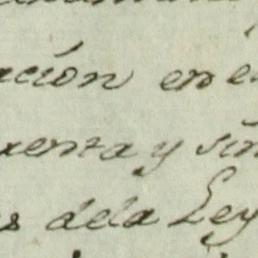 ación en e
uenta y sin
s dela Ley